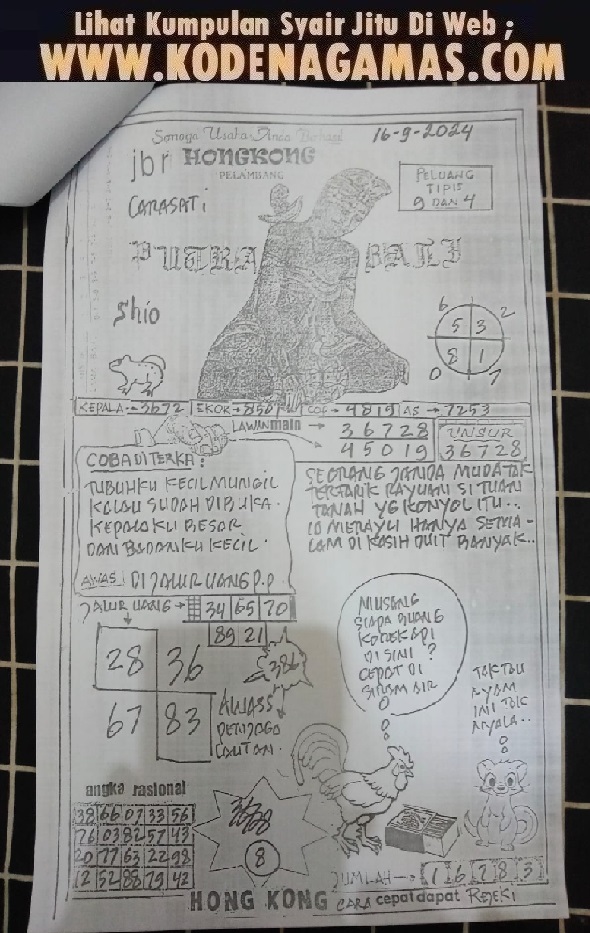 Lihat Kumpulan Syair Jitu Di Web ;
WWW.KODENAGAMAS.COM
Semoga Usaha Anda Berhasil
16-9-2024
jbr HONGKONG
PELAMBANG
PELUANG
TIPIS
9 DAN 4
CARASATI
PUTRA
Shio
6 2
5 3
8 1
0 7
KEPALA → 3672 EKOR → COP → 4819 AS → 7253
LAWAN main → 36728
→ 45019
UNSUR
36728
COBA DITERKA:
TUBUHKU KECIL MUNGIL
KALAU SUDAH DIBUKA.
KEPALAKU BESAR
DAN BADANKU KECIL.
AWAS DI JALUR UANG P.P
SEORANG JANDA MUDA TAK
TERTARIK RAYUAN SI TUAN
TANAH YG KONYOL ITU...
IA MERAYU HANYA SEMA-
LAM DI KASIH DUIT BANYAK..
JALUR UANG → 34 65 70
89 21
386
28 36
67 83
AWASS
PENJAGA
LAUTAN.
MUSANG
SIAPA BUANG
KOREK API
DI SINI ?
CEPAT DI
SIRAM AIR
TAK TAU
AYAM
INI TAK
NYALA..
angka rasional
38 66 07 33 56
76 03 82 57 43
20 77 63 22 98
12 52 88 79 42
8
JUMLAH → 1 6 7 8 3
HONG KONG CARA cepat dapat REJEKI